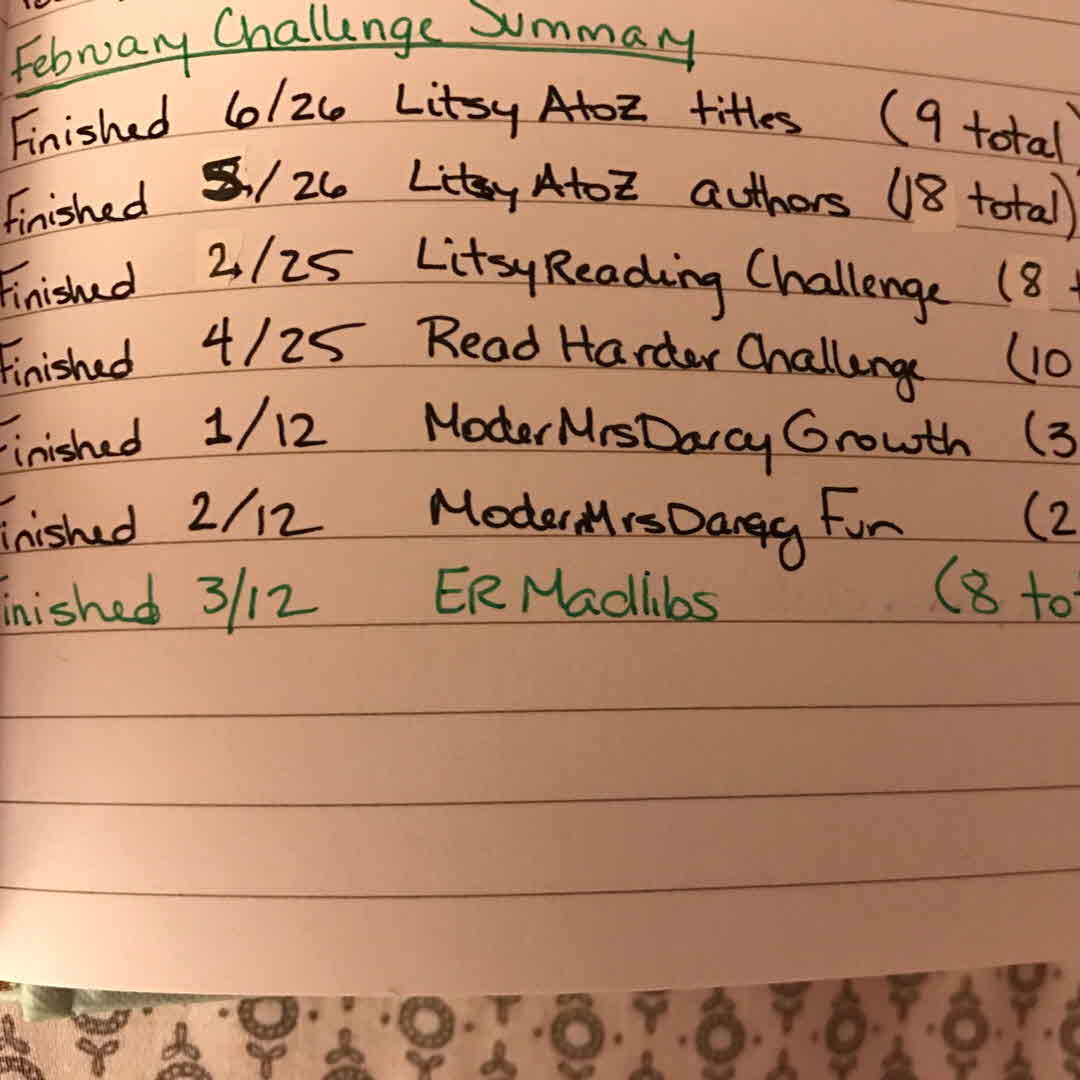 February Challenge Summary
Finished 6/26 Litsy AtoZ titles (9 total)
Finished 5/26 Litsy AtoZ authors (18 total)
Finished 2/25 LitsyReading Challenge (8 t
Finished 4/25 Read Harder Challenge (10
Finished 1/12 ModerMrsDarcy Growth (3
inished 2/12 ModernMrsDarcy Fun (2
inished 3/12 ER Madlibs (8 to